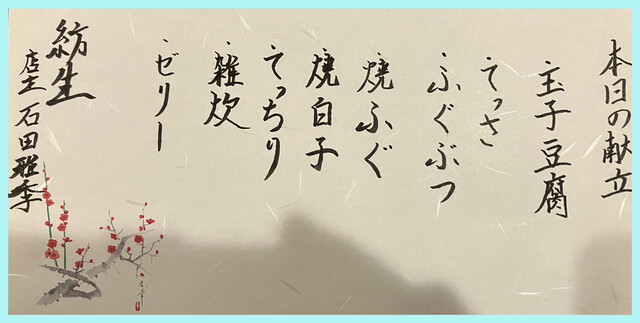 本日の献立
・玉子豆腐
・てっさ
・ふぐぶつ
・焼ふぐ
・焼白子
・てっちり
・雑炊
・ゼリー
紡生
店主 石田雅季